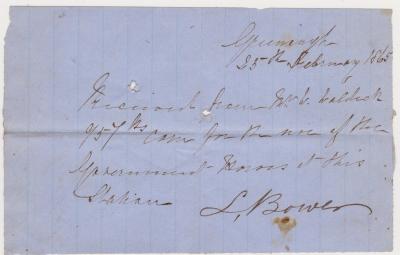 25th February 1865
Received from Mr
957 lbs corn for the use of the
Government Horses at this
Station
L, Bower